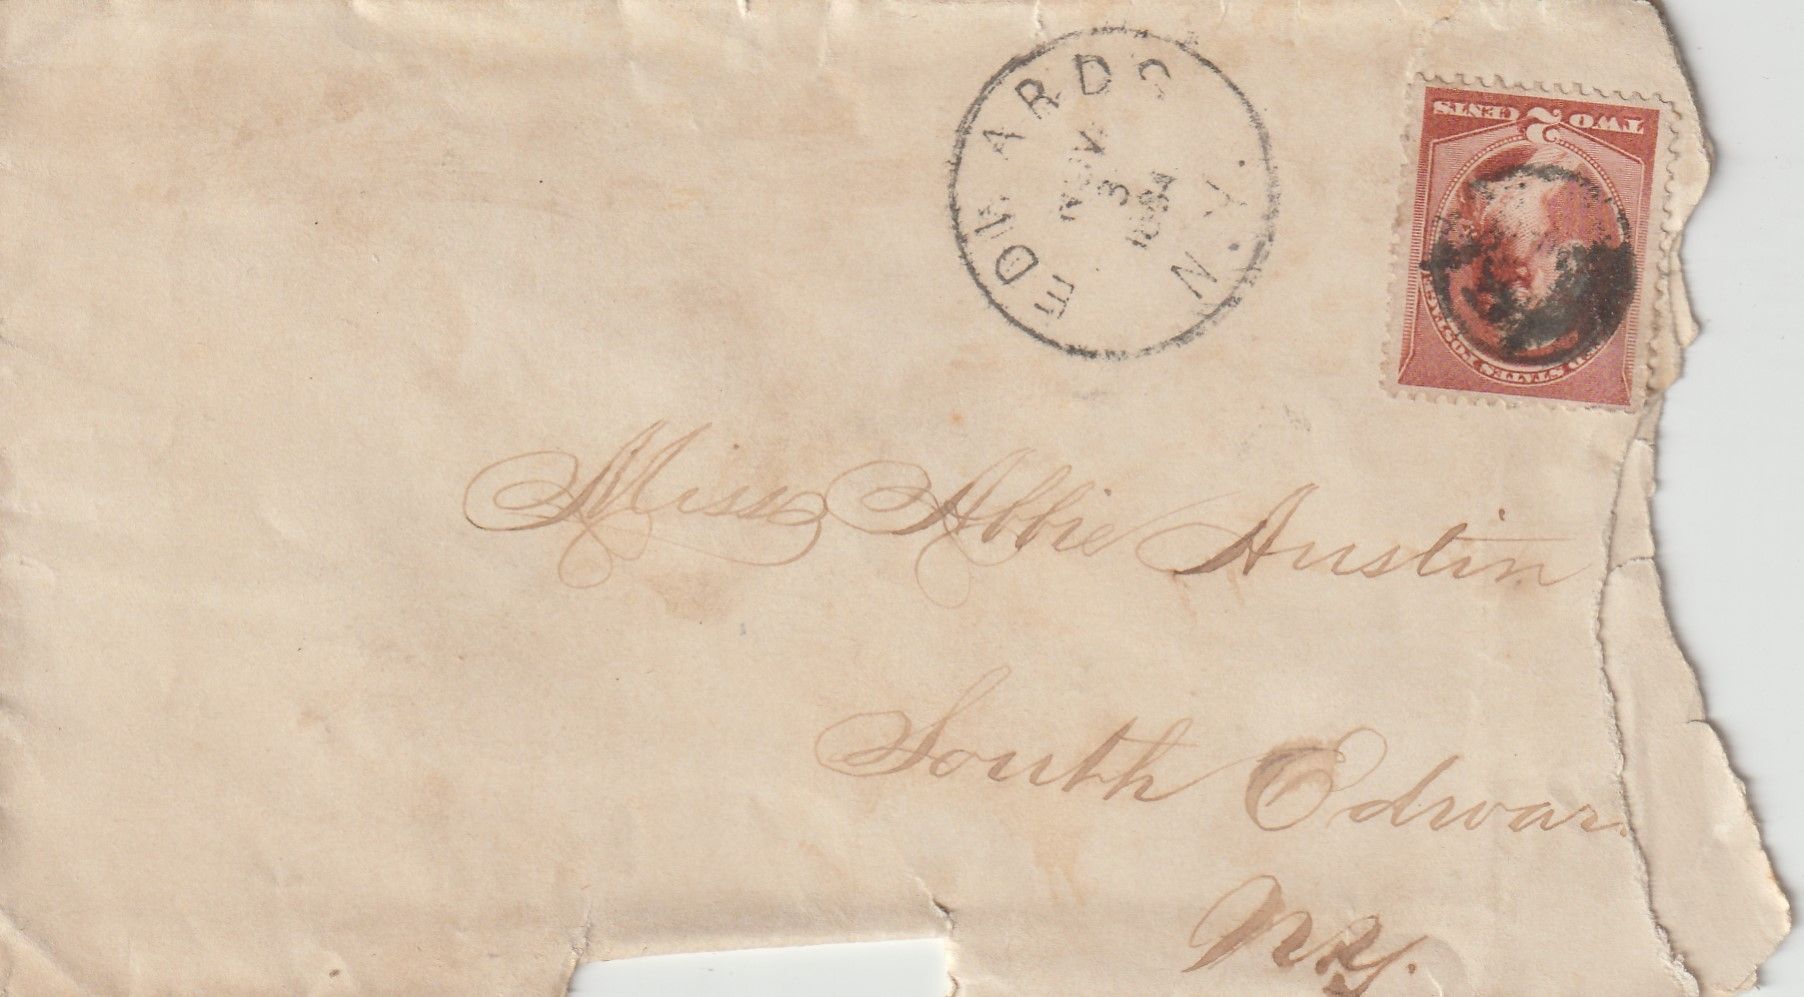 EDWARDS N.Y.
NOV
3
1884
TWO 2 CENTS
STATES POSTAGE
Miss Abbie Austin
South Edwar
N.Y.